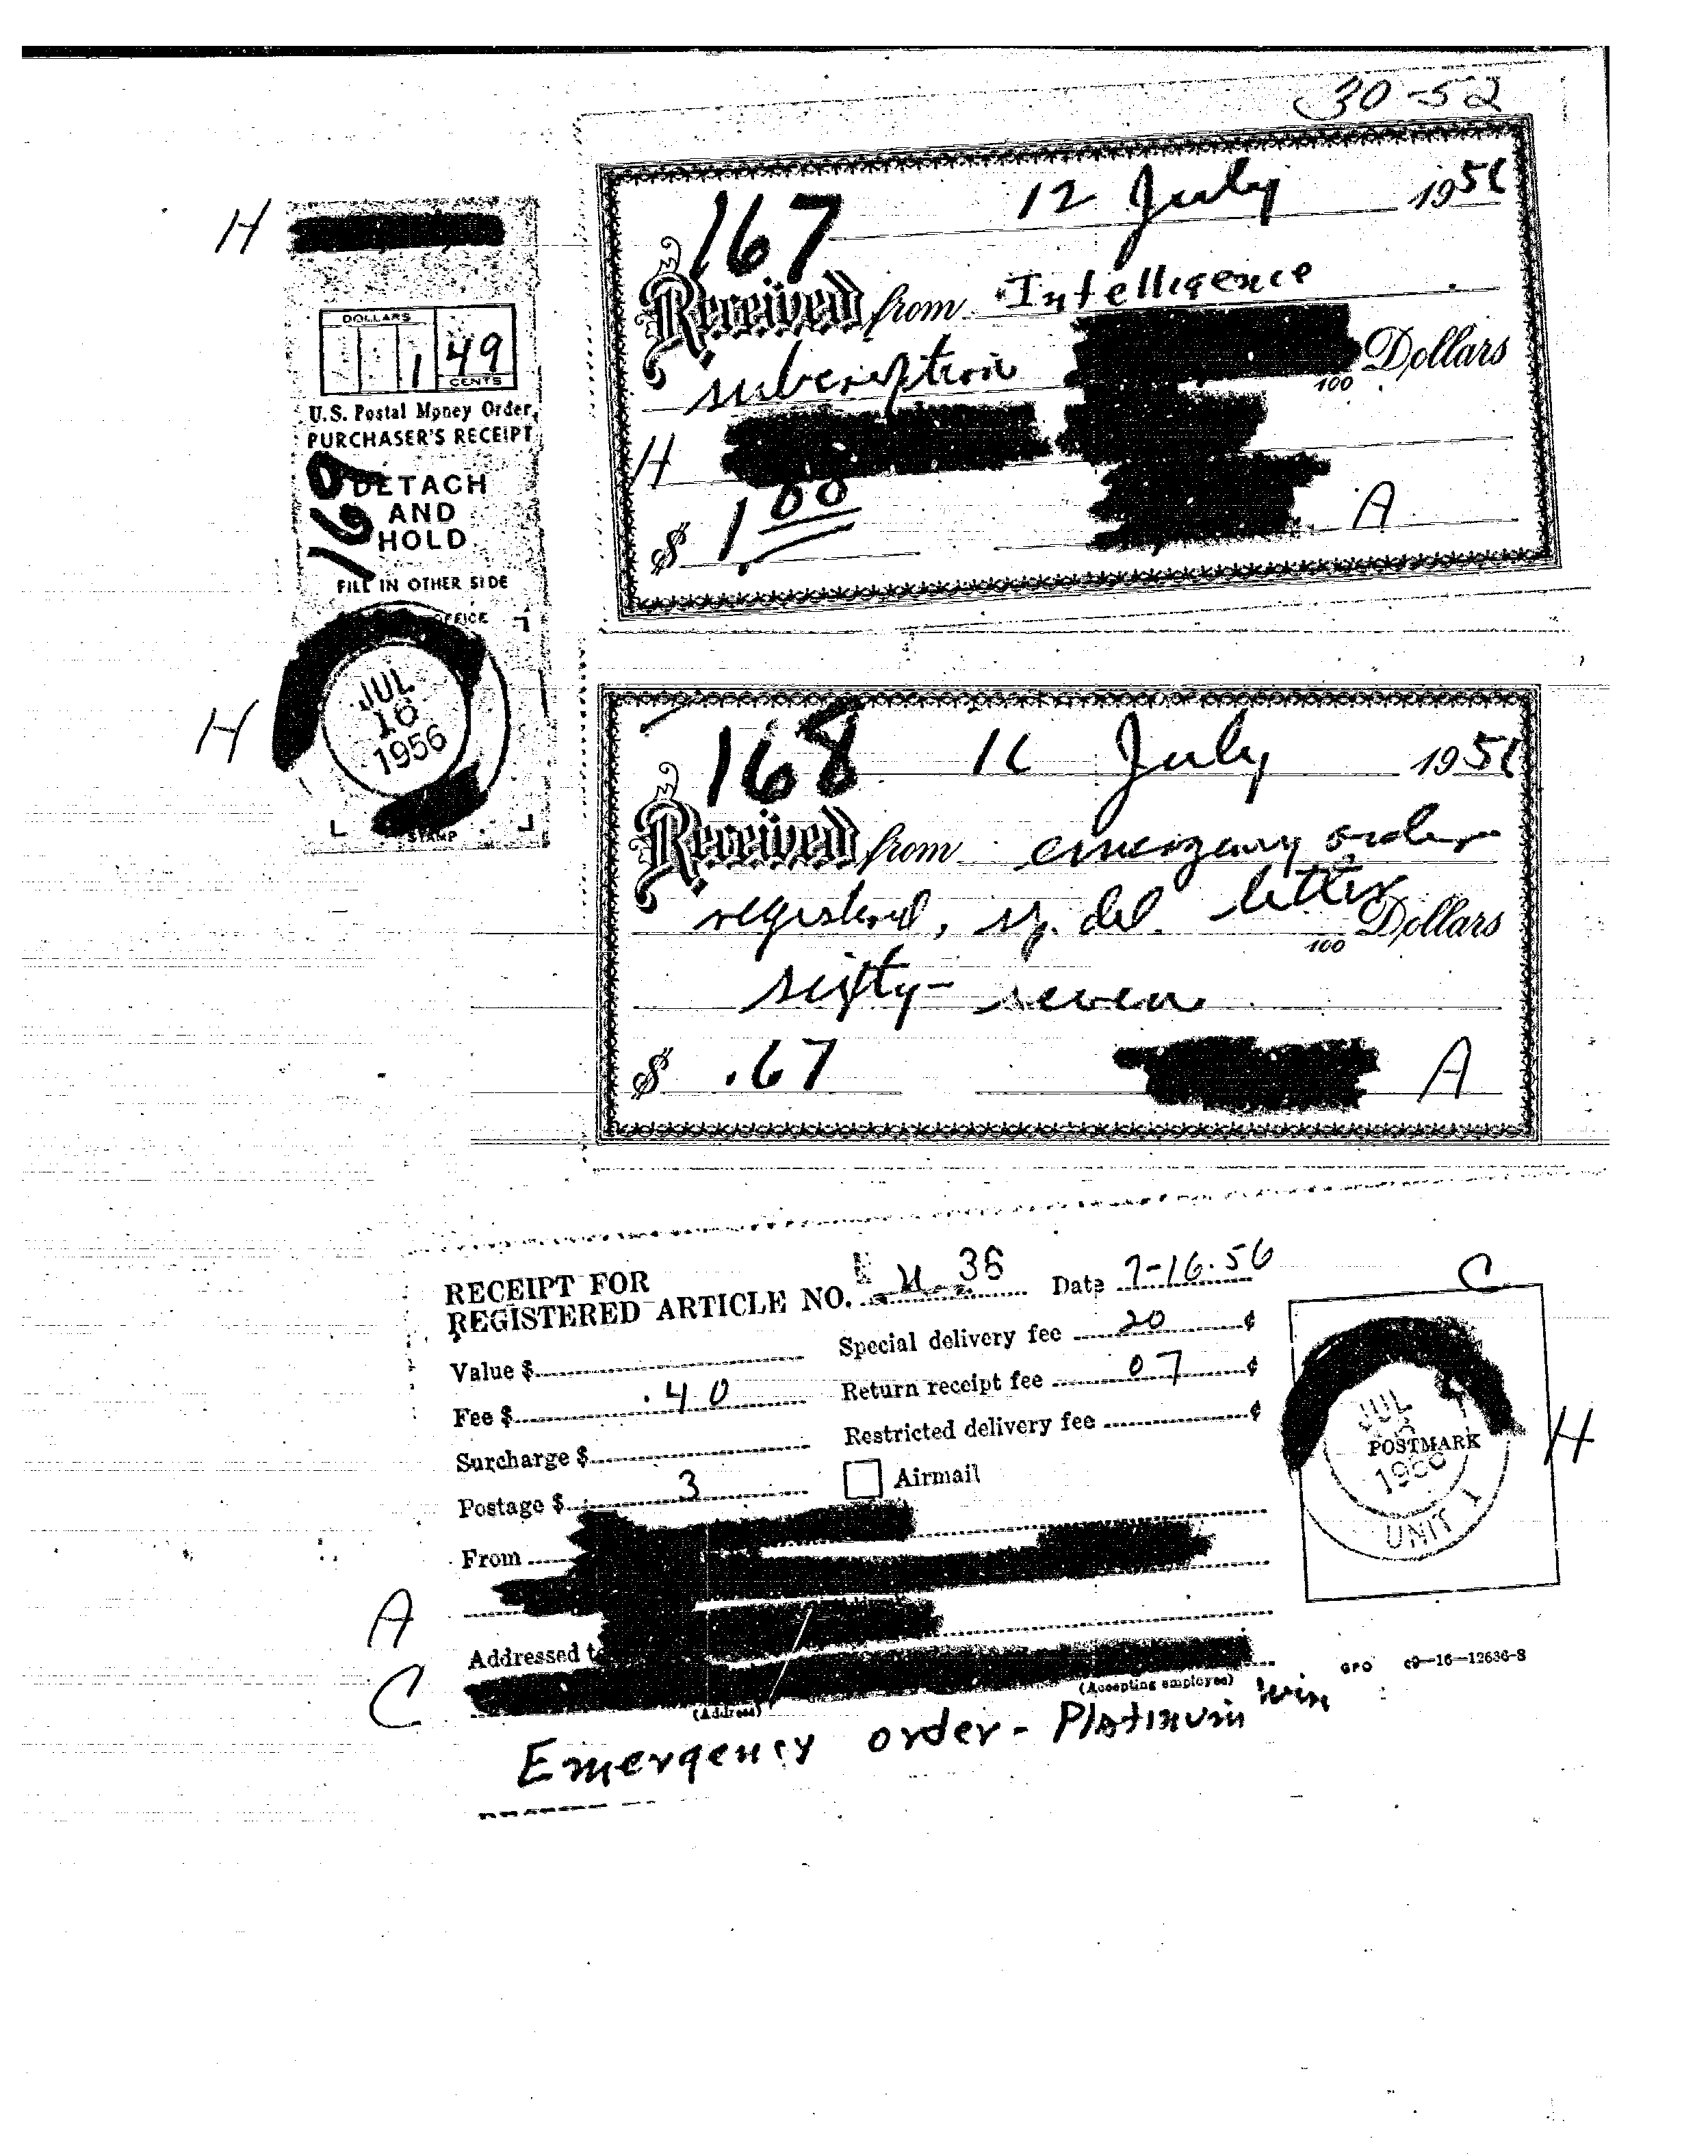 30-52
H
DOLLARS
1 49
CENTS
U.S. Postal Money Order
PURCHASER'S RECEIPT
169
DETACH
AND
HOLD
FILL IN OTHER SIDE
OFFICE
JUL
16
1956
H
STAMP
167 12 July 1956
Received from Intelligence
subscription 100 Dollars
H
$ 1.00 A
168 16 July 1956
Received from emergency order
registered, sp. del. letter 100 Dollars
sixty-seven
$ .67 A
RECEIPT FOR
REGISTERED ARTICLE NO. 36 Date 7-16-56
C
Value $ Special delivery fee 20 ¢
Fee $ .40 Return receipt fee 07 ¢
Surcharge $ Restricted delivery fee ¢
Postage $ 3 Airmail
JUL
POSTMARK
1956
UNIT 1
H
From
A
Addressed to
C
(Address) (Accepting employee) GPO c9—16—12636-8
Emergency order - Platinum wire